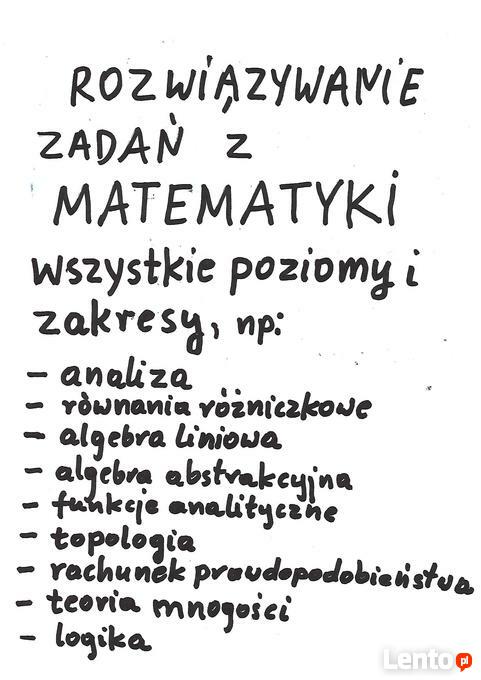 ROZWIĄZYWANIE
ZADAŃ Z
MATEMATYKI
wszystkie poziomy i
zakresy, np:
- analiza
- równania różniczkowe
- algebra liniowa
- algebra abstrakcyjna
- funkcje analityczne
- topologia
- rachunek prawdopodobieństwa
- teoria mnogości
- logika
Lento.pl